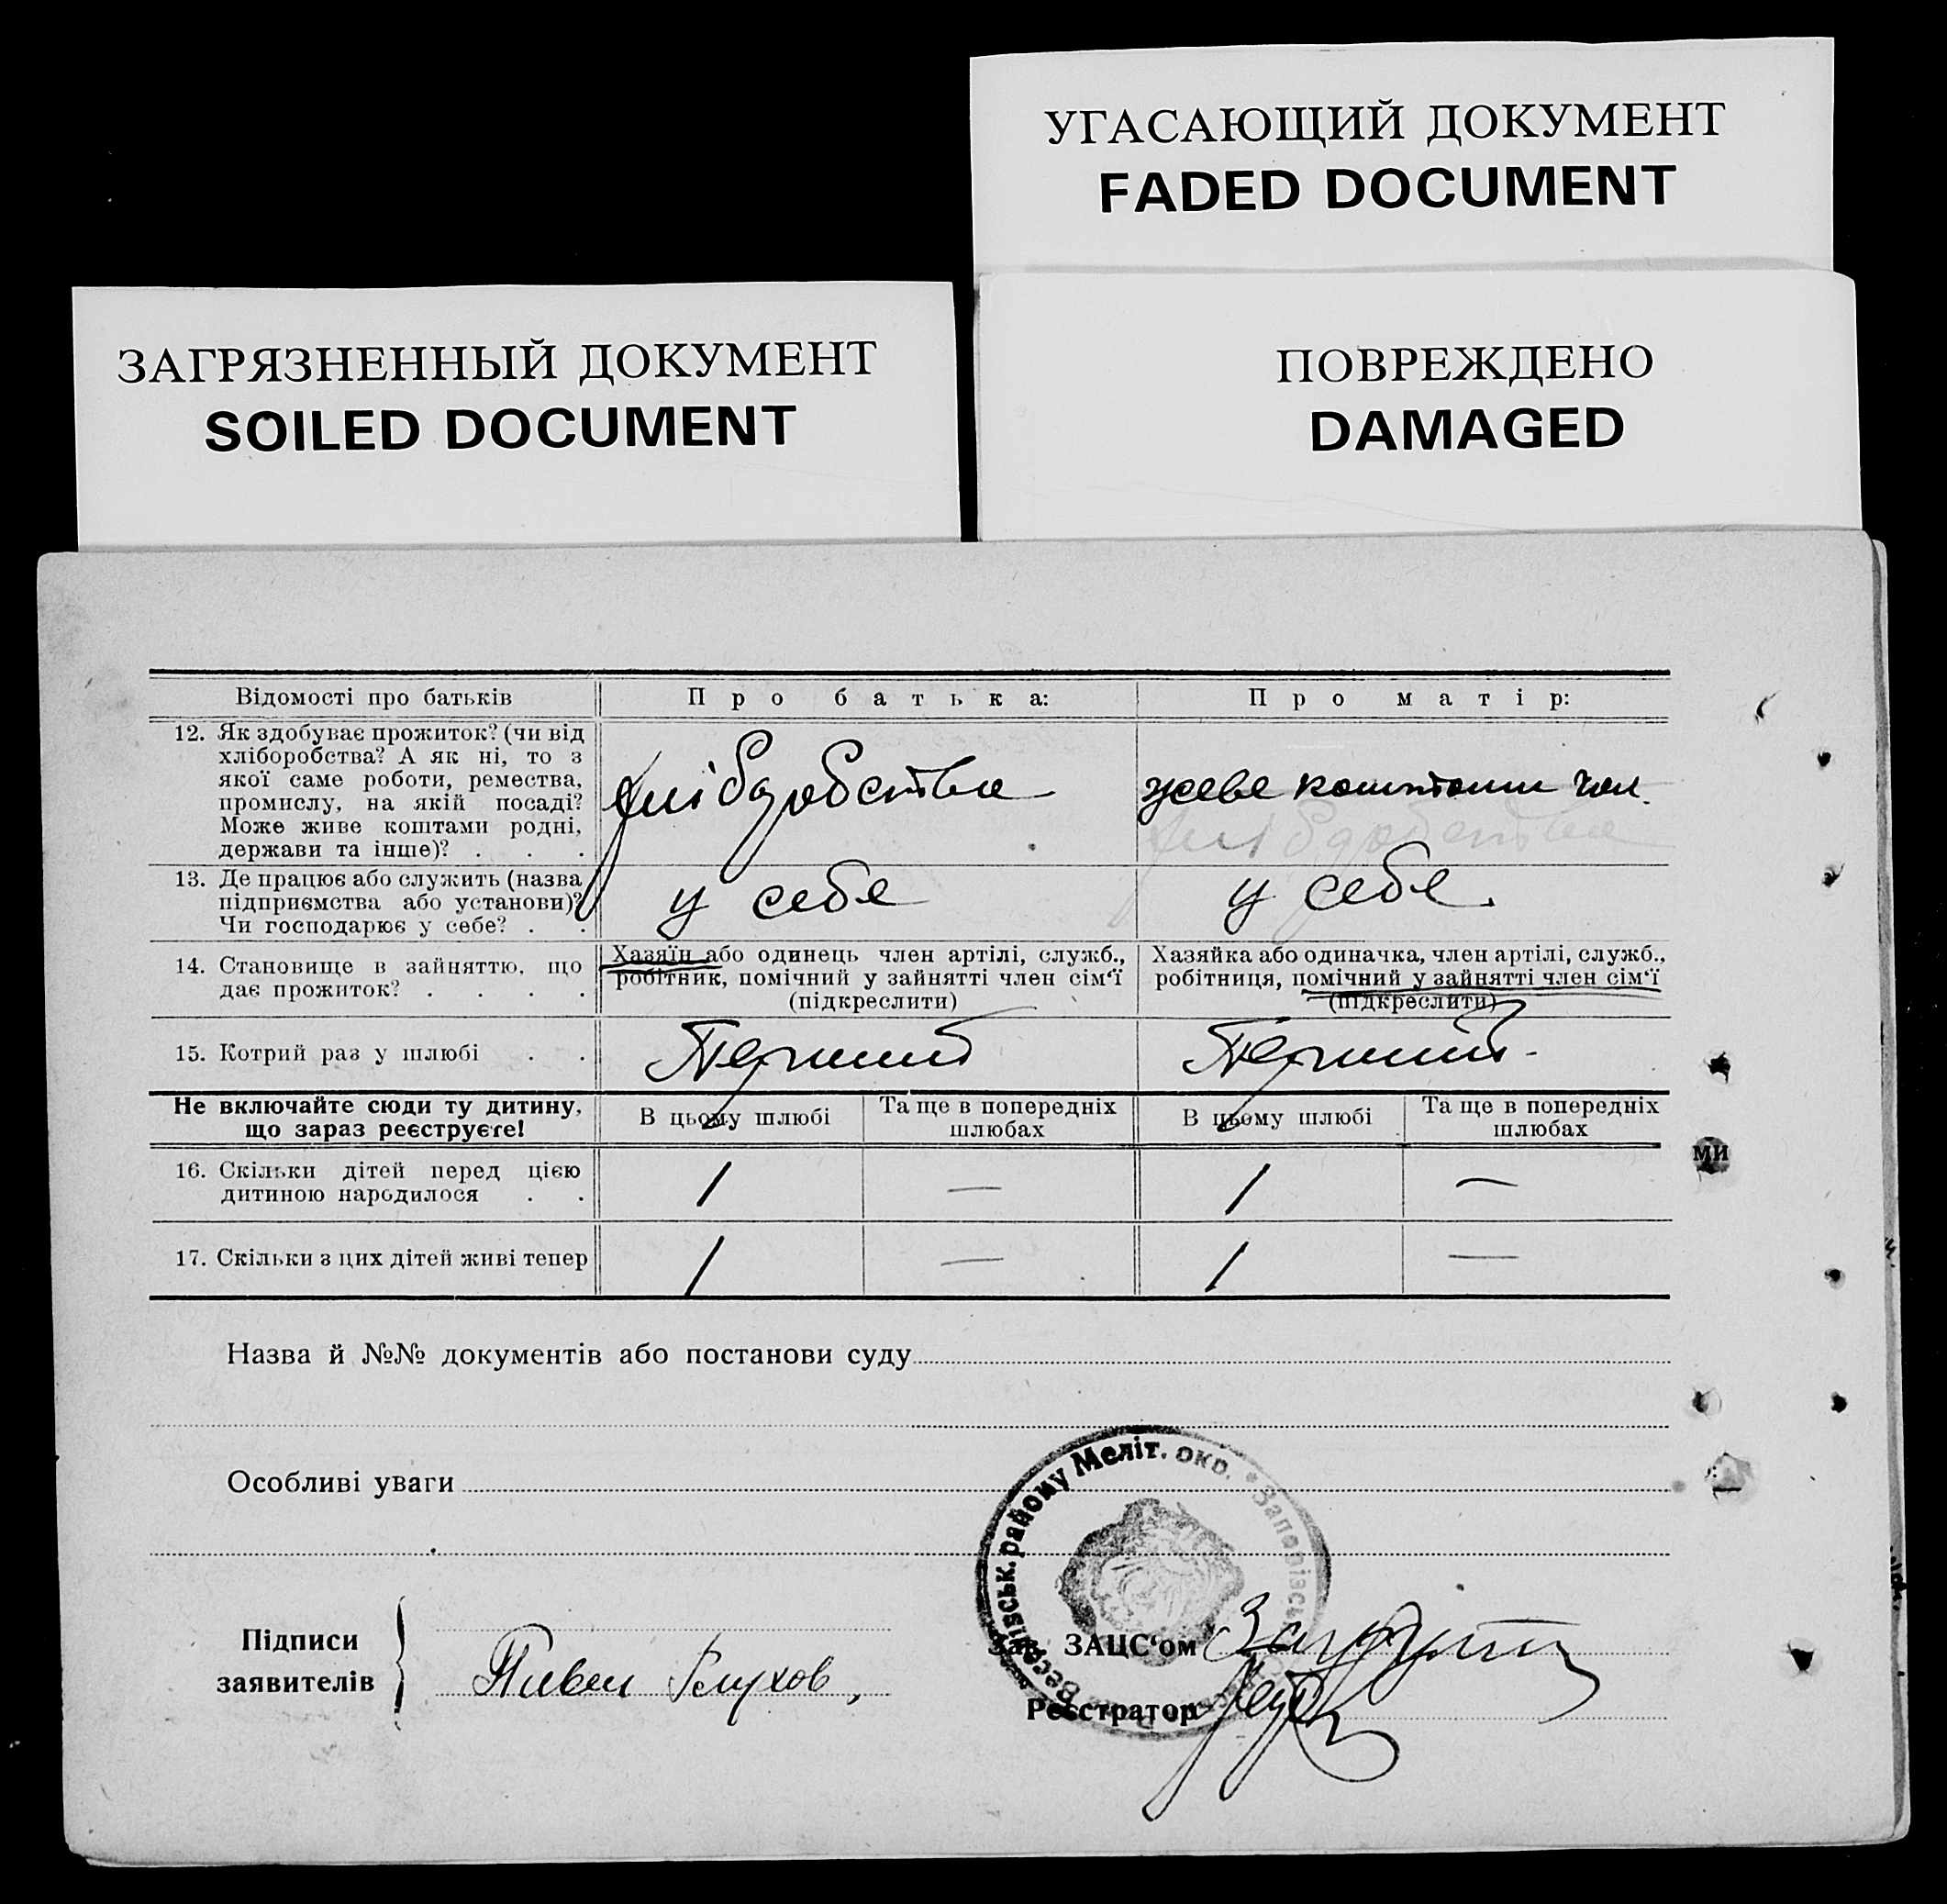 УГАСАЮЩИЙ ДОКУМЕНТ
FADED DOCUMENT
ЗАГРЯЗНЕННЫЙ ДОКУМЕНТ
SOILED DOCUMENT
ПОВРЕЖДЕНО
DAMAGED
Відомості про батьків
Про батька:
Про матір:
12. Як здобуває прожиток? (чи від
хліборобства? А як ні, то з
якої саме роботи, ремества,
промислу, на якій посаді?
Може живе коштами родні,
держави та інше)? . . .
хліборобства
живе коштами чол.
хліборобства
13. Де працює або служить (назва
підприємства або установи)?
Чи господарює у себе? . .
у себе
у себе.
14. Становище в зайняттю, що
дає прожиток? . . . .
Хазяїн або одинець член артілі, служб.,
робітник, помічний у зайнятті член сім'ї
(підкреслити)
Хазяйка або одиначка, член артілі, служб.,
робітниця, помічний у зайнятті член сім'ї
(підкреслити)
15. Котрий раз у шлюбі . .
Перший
Перший.
Не включайте сюди ту дитину,
що зараз реєструєте!
В цьому шлюбі
Та ще в попередніх
шлюбах
В цьому шлюбі
Та ще в попередніх
шлюбах
16. Скільки дітей перед цією
дитиною народилося . .
1 — 1 —
17. Скільки з цих дітей живі тепер
1 — 1 —
ми
Назва й №№ документів або постанови суду
Особливі уваги
району Меліт. окр. *
Підписи
заявителів
Глухов,
Зав. ЗАЦС'ом
Реєстратор